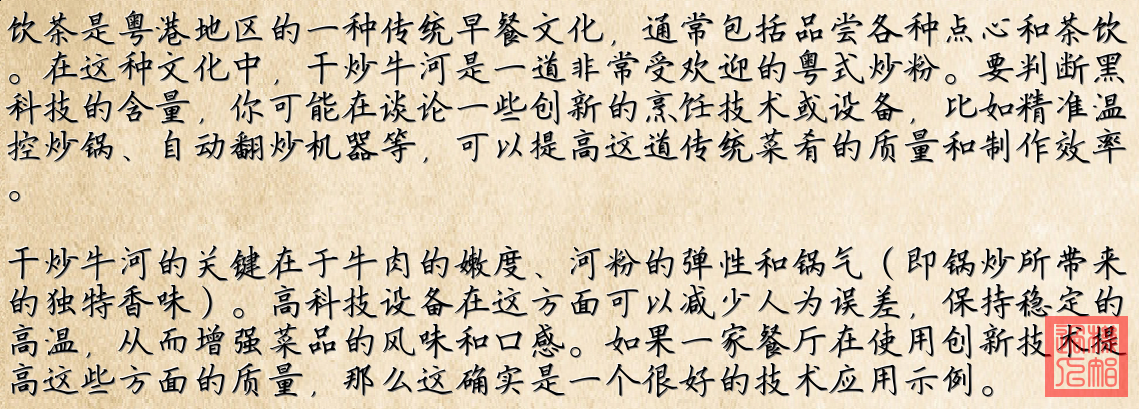 饮茶是粤港地区的一种传统早餐文化，通常包括品尝各种点心和茶饮
。在这种文化中，干炒牛河是一道非常受欢迎的粤式炒粉。要判断黑
科技的含量，你可能在谈论一些创新的烹饪技术或设备，比如精准温
控炒锅、自动翻炒机器等，可以提高这道传统菜肴的质量和制作效率
。
干炒牛河的关键在于牛肉的嫩度、河粉的弹性和锅气（即锅炒所带来
的独特香味）。高科技设备在这方面可以减少人为误差，保持稳定的
高温，从而增强菜品的风味和口感。如果一家餐厅在使用创新技术提
高这些方面的质量，那么这确实是一个很好的技术应用示例。